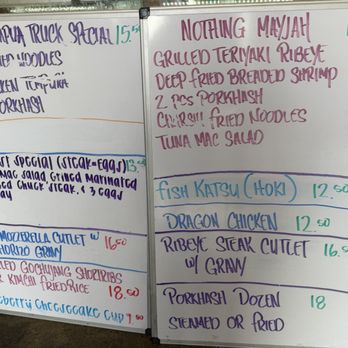 APUA TRUCK SPECIAL 15.5
IED NOODLES
KEN
PORKHASH
SPECIAL (STEAK=EGGS) 13.5
MAC SALAD, Grilled Marinated
CHUCK STEAK, & 3 EGGS
MOZZERELLA CUTLET W 16.50
GRAVY
LED GOCHUJANG SHORTRIBS
KIMCHI FRIED RICE 18.00
BERRY CHEESECAKE CUP 7.50
NOTHING MAYJAH
GRILLED TERIYAKI RIBEYE
DEEP FRIED BREADED SHRIMP
2 PCS PORKHASH
FRIED NOODLES
TUNA MAC SALAD
FISH KATSU (HOKI) 12.50
DRAGON CHICKEN 12.50
RIBEYE STEAK CUTLET 16.
W/ GRAVY
PORKHASH DOZEN 18
STEAMED OR FRIED